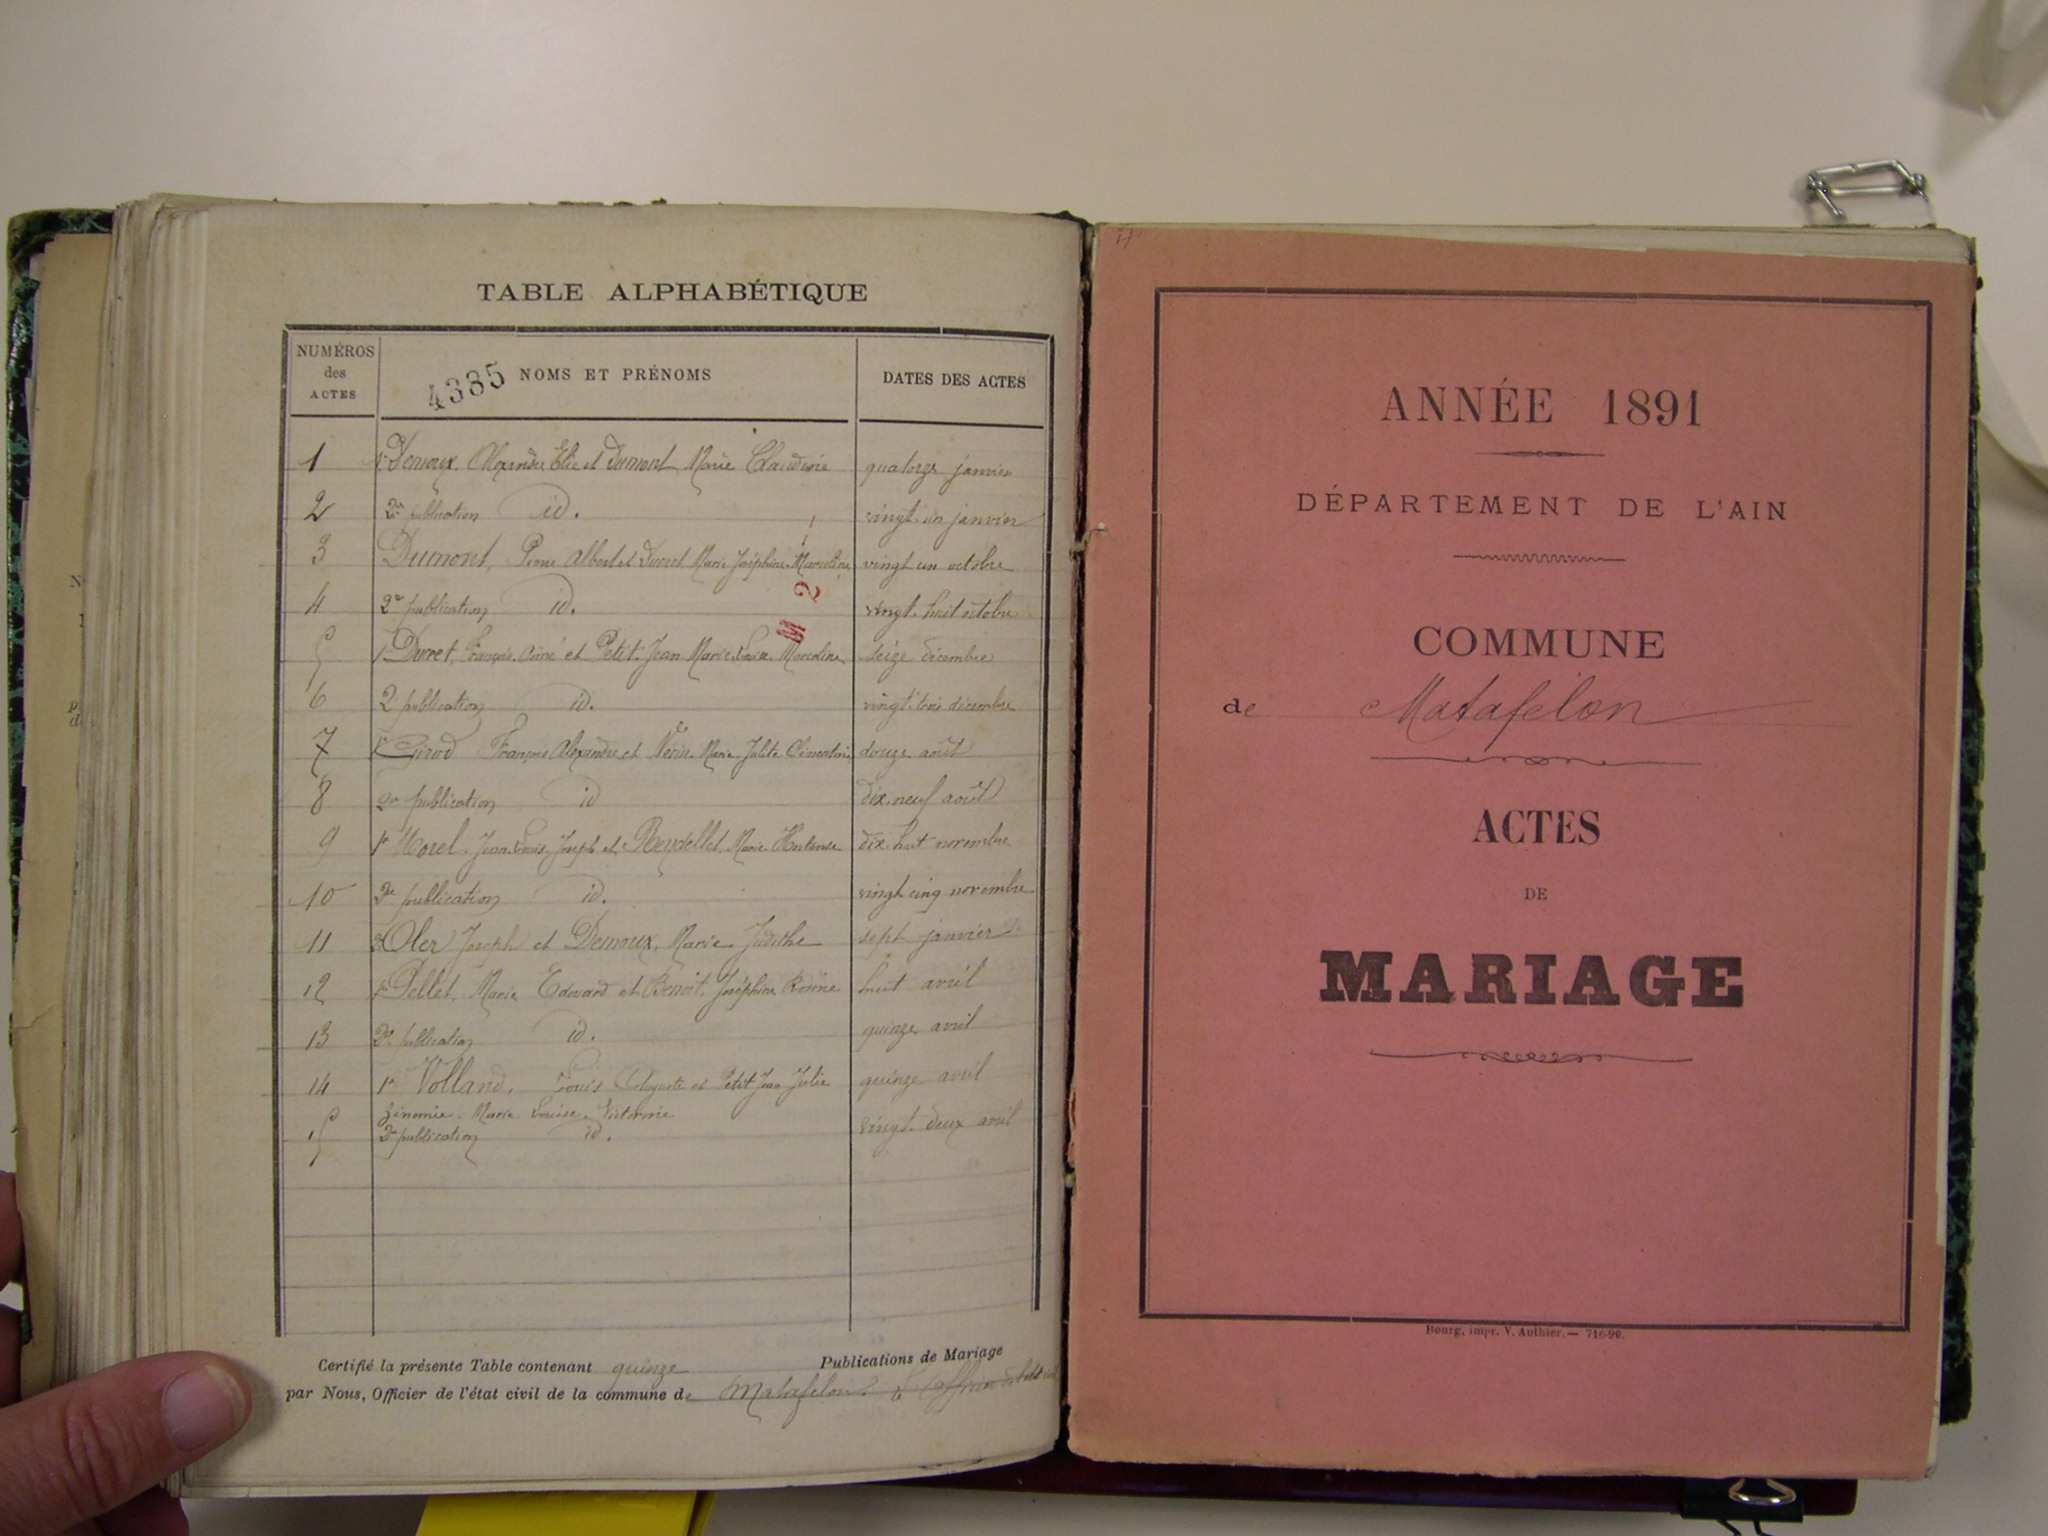 TABLE ALPHABÉTIQUE
NUMÉROS des ACTES
4385 NOMS ET PRÉNOMS
DATES DES ACTES
1 1e Demoux, Alexandre Elie et Dumont Marie Claudine quatorze janvier
2 2e publication id. vingt un janvier
3 Dumont, Pierre Albert et Durret Marie Joséphine Marceline vingt un octobre
4 2e publication id. vingt huit octobre
M 2
5 1e Durret, François Aimé et Petit-Jean Marie Louise Marceline seize décembre
6 2 publication id. vingt trois décembre
7 1e Girod François Alexandre et Marie Julite Clémentine douze août
8 2e publication id dix neuf août
9 1e Morel Jean Louis Joseph et Marie Hortense dix huit novembre
10 2e publication id. vingt cinq novembre
11 2e Oler Joseph et Demoux, Marie Judithe sept janvier
12 1e Pellet, Marie Edouard et Benoit, Joséphine huit avril
13 2e publication id. quinze avril
14 1e Volland, Louis Auguste et Petit Jean Julie quinze avril
Marie Louise Victorine
15 2e publication id. vingt deux avril
Certifié la présente Table contenant quinze Publications de Mariage
par Nous, Officier de l'état civil de la commune de Matafelon
ANNÉE 1891
DÉPARTEMENT DE L'AIN
COMMUNE
de Matafelon
ACTES
DE
MARIAGE
Bourg, impr. V. Authier. — 716-90.